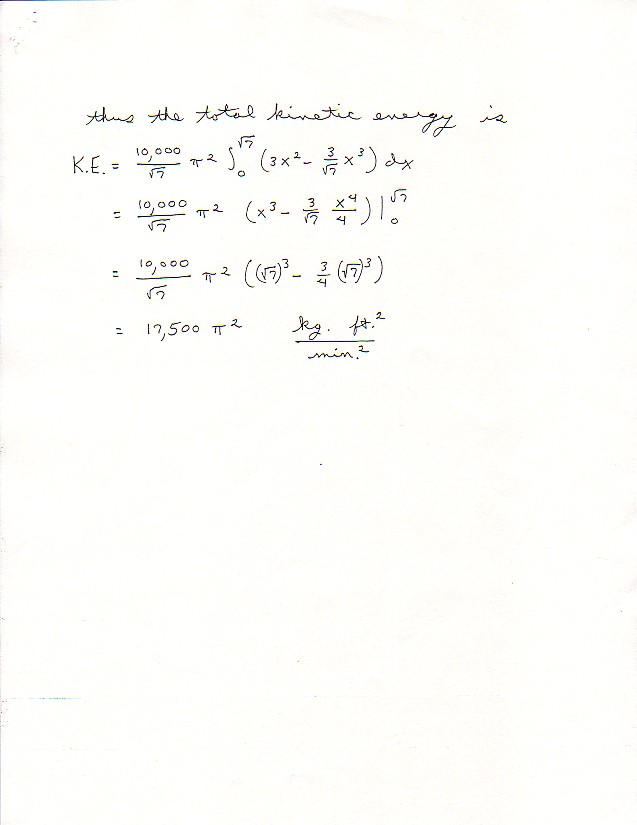 thus the total kinetic energy is
K.E. = 10,000/√7 π² ∫₀^√7 (3x² - 3/√7 x³) dx
= 10,000/√7 π² (x³ - 3/√7 x⁴/4) |₀^√7
= 10,000/√7 π² ((√7)³ - 3/4 (√7)³)
= 17,500 π² kg. ft.²/min.²